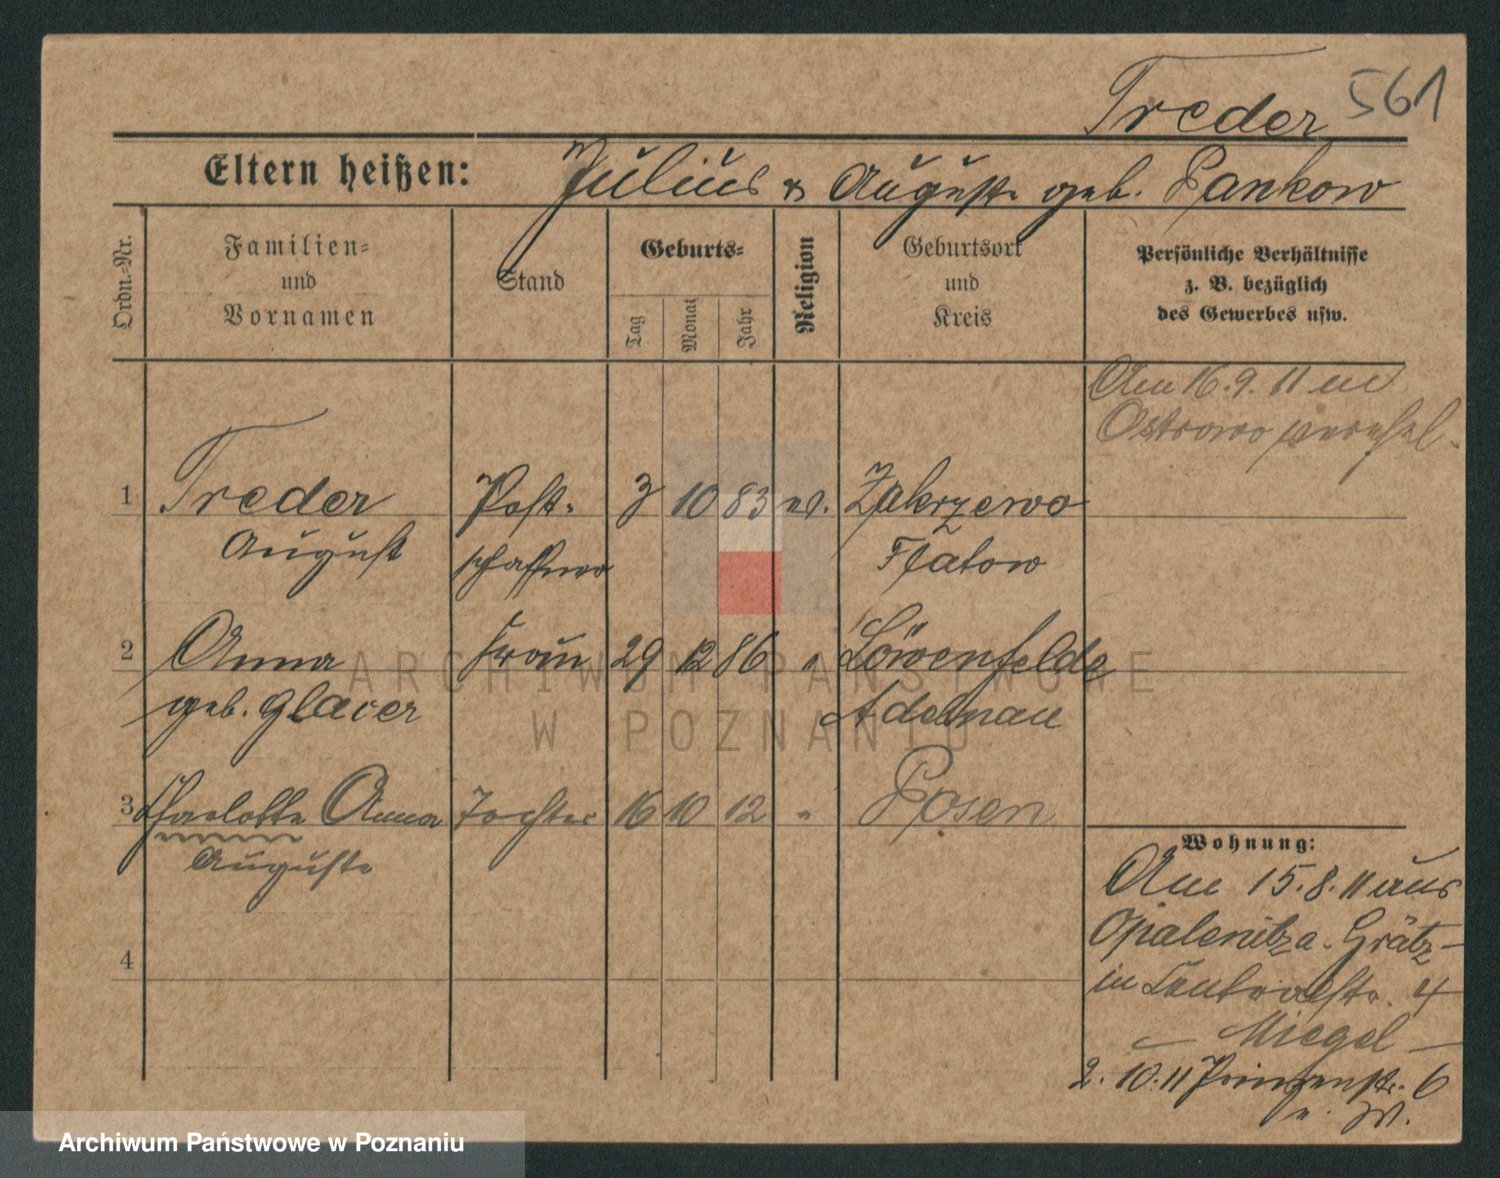 Treder 561
Eltern heißen: Julius & Auguste geb. Pankow
Ordn.-Nr.
Familien-
und
Vornamen
Stand
Geburts-
Tag
Monat
Jahr
Religion
Geburtsort
und
Kreis
Persönliche Verhältnisse
z. B. bezüglich
des Gewerbes usw.
Am 16.9.11 in
Ostrowo verehel.
1 Treder Post- 3 10 83 ev. Zakrzewo
August schaffner Flatow
2 Anna Frau 29 12 86 " Löwenfelde
geb. Glaeer Adelnau
3 Charlotte Anna Tochter 16 10 12 " Posen
Auguste
4
Wohnung:
Am 15.8.11 aus
Opalenitza-Grätz-
in Centralstr. 4
– Miegel –
2.10.11 Prinzenstr. 6
n. W.
ARCHIWUM PAŃSTWOWE
W POZNANIU
Archiwum Państwowe w Poznaniu